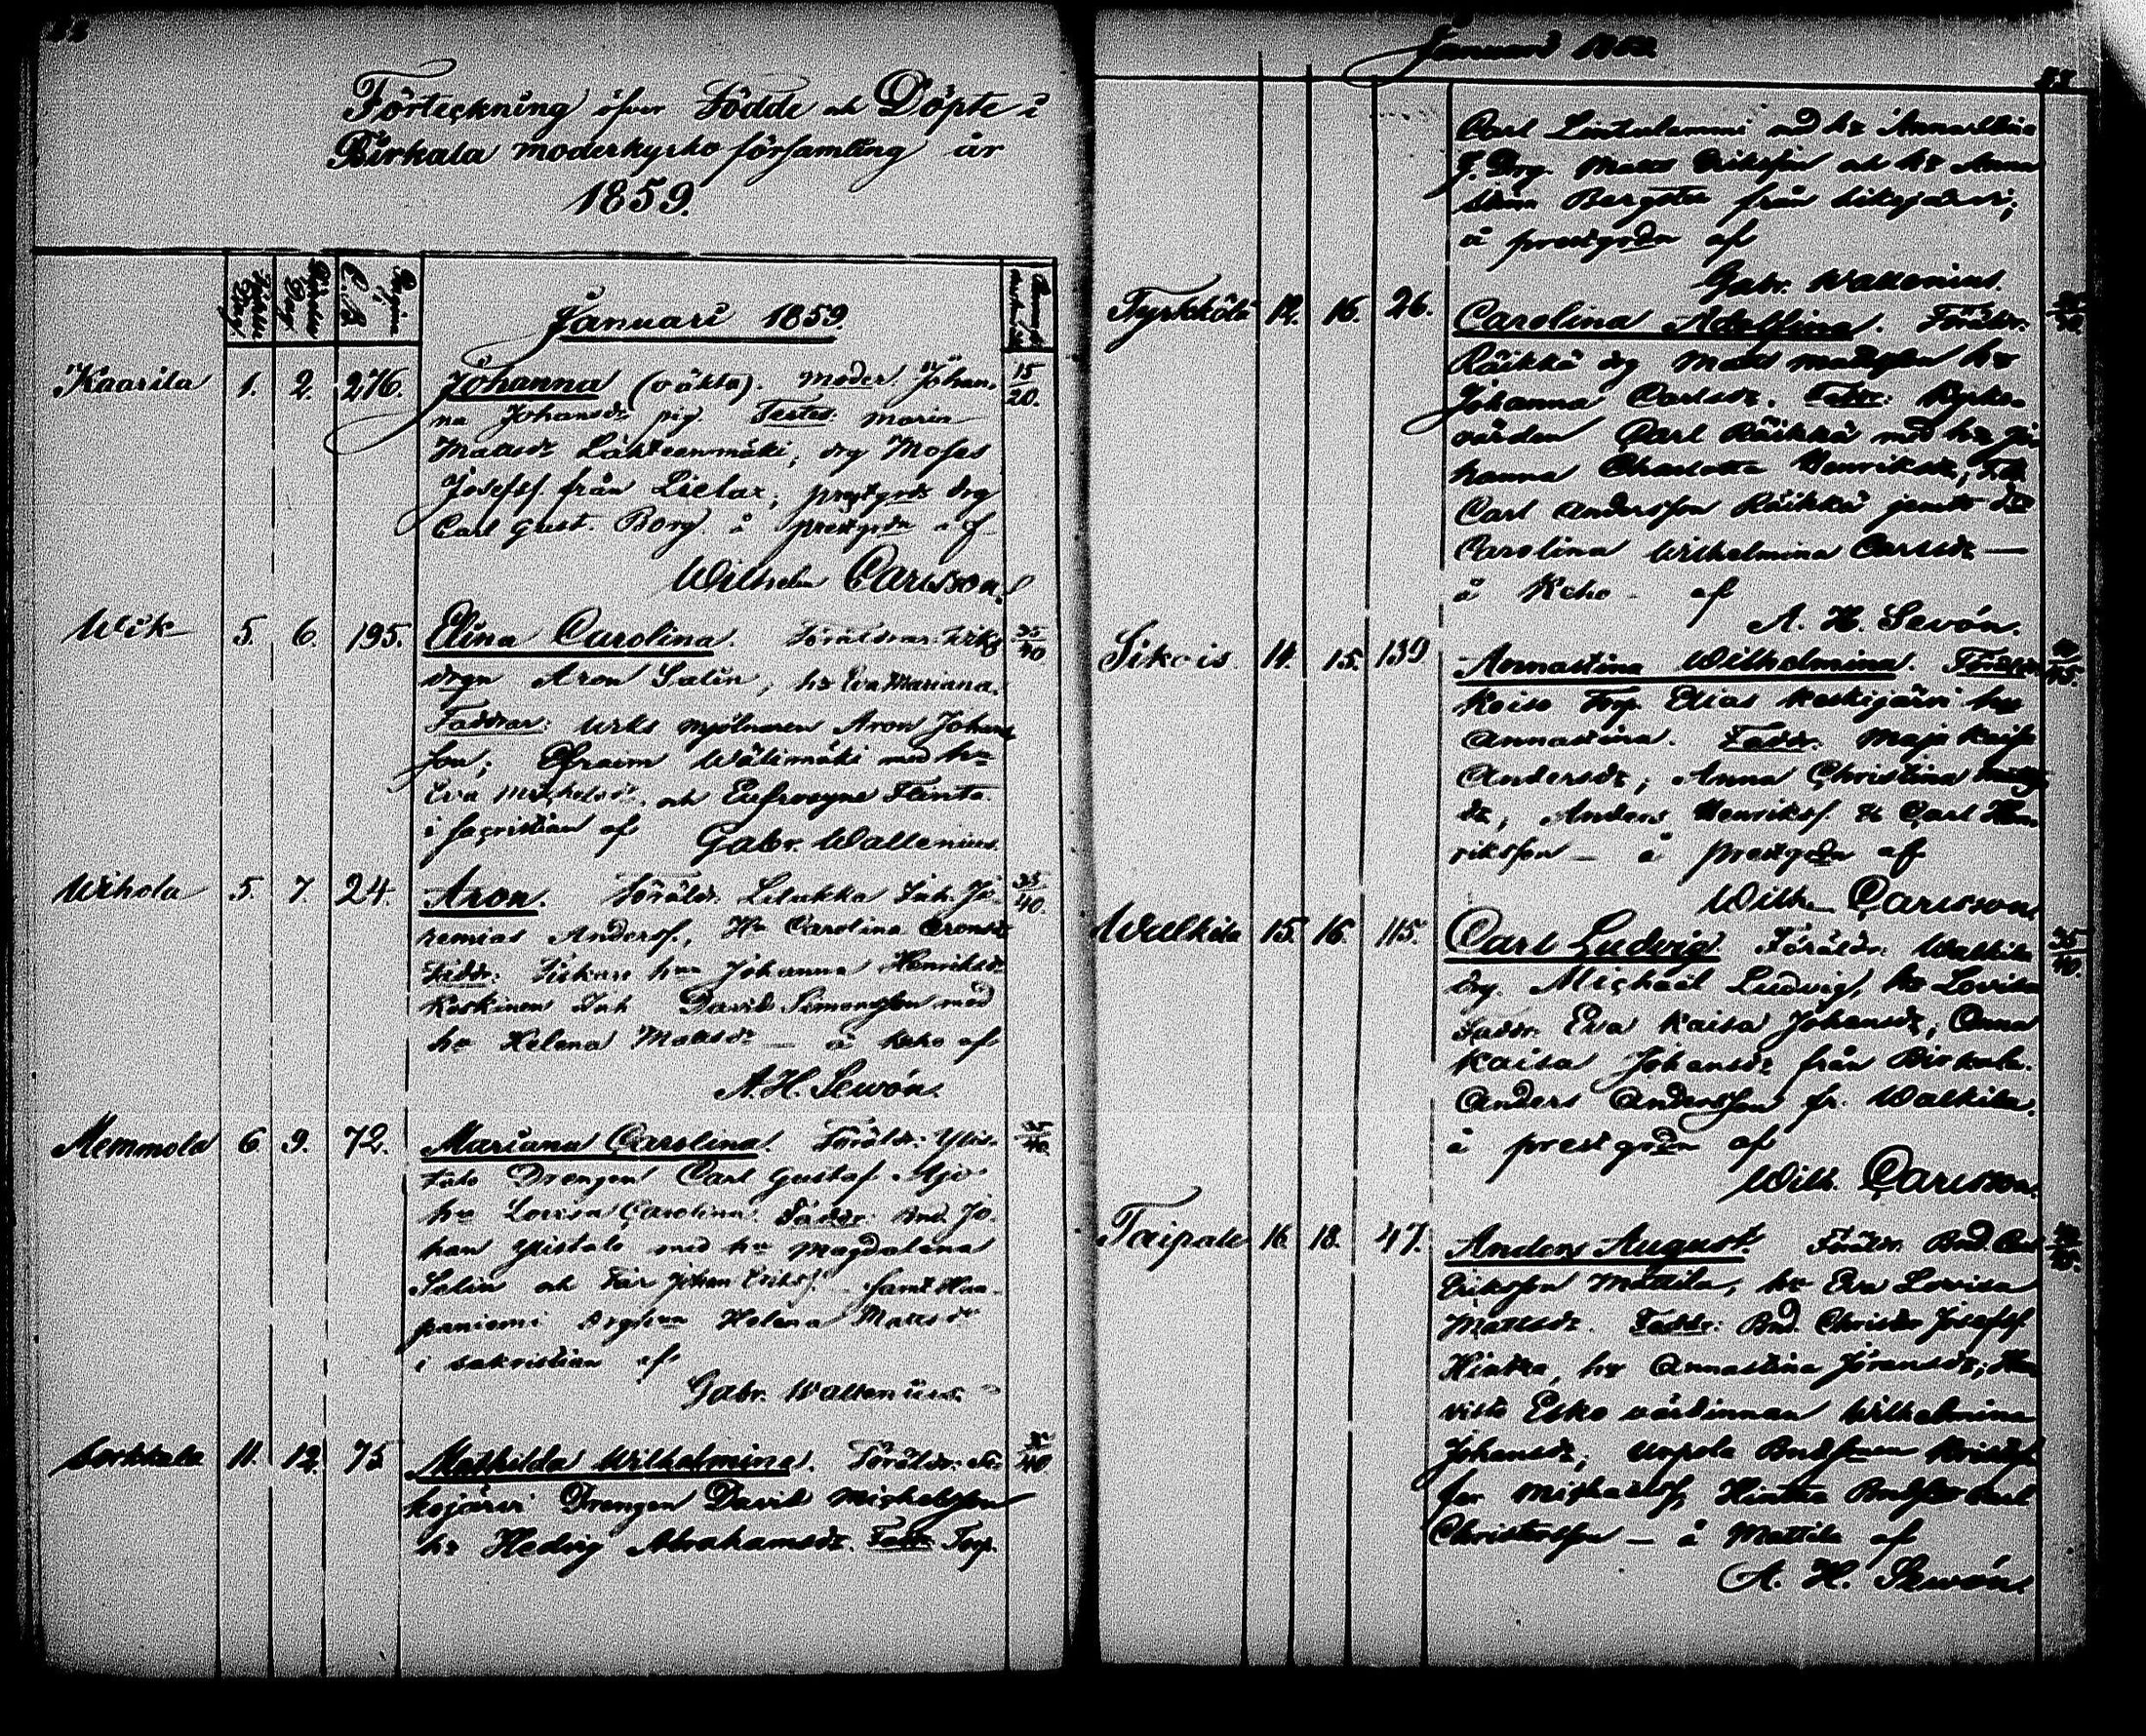 Förteckning öfver Födde och Döpte i
Birkala moderkyrko församling år
1859.
Januari 1859.
Kaarila 1. 2. 276. Johanna (oäkta). Moder: Johan- 15/20.
na Johansdr pig. Testes: Maria
Mattsdr Lähteenmäki, drg Moses
Josefss. från Lielax; prestgrds drg
Carl Gust. Borg. å prestgrdn af
Wilhelm Carlsson.
Wik 5. 6. 195. Elina Carolina. Föräldrar: 35/40
drgn Aron Salin, hu Eva Mariana.
Faddrar: Wiks mjölnaren Aron Johans
son; Efraim Wälimäki med hu
Eva Michelsdr och Eufrosyne
i sacristian af Gabr. Wallenius.
Wihola 5. 7. 24. Aron. Föräldr. Inh. Je- 35/40.
remias Anderss., Hu Carolina Aronsdr
Faddr: hu Johanna Henriksdr
Keskinen Inh David Simonsson med
hu Helena Mattsdr — å Kcho af
A. H. Sewón.
Memmola 6. 9. 72. Mariana Carolina. Föräldr: Ylis- 35/40.
talo Drengen Carl Gustaf
hu Lovisa Carolina. Faddr: Bnd. Jo-
han Ylistalo med hu Magdalena
Salin och Johan Erikss. samt Haa-
paniemi drghun Helena Mattsdr
i sakristian af
Gabr. Wallenius.
Sorkkala 11. 12. 75 Mathilda Wilhelmina. Föräldr: 35/40
Drengen David Michelsson
hu Hedvig Abrahamsdr. Faddr. Torp.
Januari 1859.
Carl Lintulammi med hu
Drg. Matts Eriksson och hu Anna
Stina från
å prestgrdn af
Gabr. Wallenius.
Tyrkkölä 12. 16. 26. Carolina Adolfina. Föräldr.
Räikkä drg Matts Mattsson hu
Johanna Carlsdr. Faddr: Kyrko-
värden Carl Räikkä med hu Jo
hanna Charlotta Henriksdr,
Carl Andersson Räikkä jemte
Carolina Wilhelmina Carlsdr —
å Kcho — af
A. H. Sewón.
Sikois 14. 15. 139 Annastina Wilhelmina.
Torp. Elias Keskijärvi hu
Annastina. Faddr. Maja Kaisa
Andersdr; Anna Christina
dr, Anders Henrikss. & Carl Hen-
riksson — å prestgrdn af
Wilh. Carlsson.
Walkila 15. 16. 115. Carl Ludvig. Föräldr: Walkila 35/40.
drg. Michael Ludvig, hu Lovisa
Faddr. Eva Kaisa Johansdr, Anna
Kaisa Johansdr från Birkala.
Anders Andersson fr. Walkila.
å prestgrdn af
Wilh. Carlsson.
Taipale 16. 18. 47. Anders August. Föräldr. Bnd. Carl
Eriksson Mattila, hu Eva Lovisa
Mattsdr. Faddr: Bnd. Christer Josefss
Hintsa, hu Annastina Jöransdr;
Esko värdinnan Wilhelmina
Johansdr;
Michaelss, Hintsa Carl
Christersson — å Mattila af
A. H. Sewón.